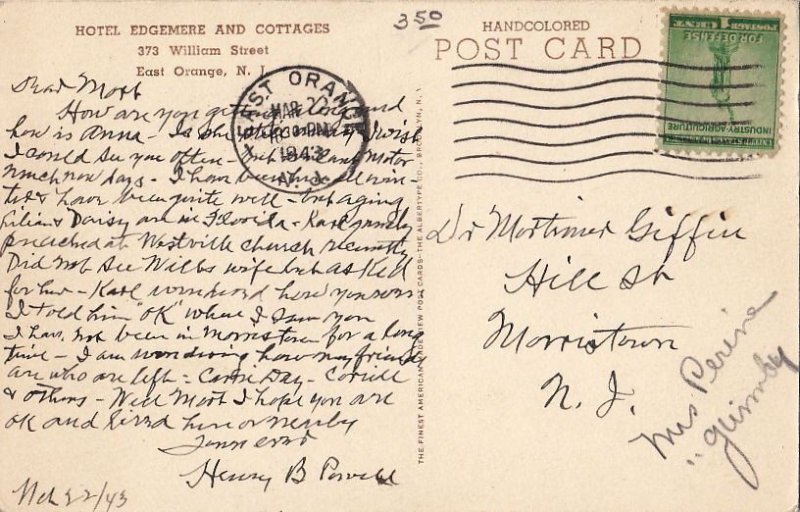 HOTEL EDGEMERE AND COTTAGES
373 William Street
East Orange, N. J.
350
Dear Mort
How are you getting along and
how is Anna - Is she I wish
I could see you often - but Cant motor
much now days - I have been here all win-
ter & have been quite well - but aging
Lilian & Daisy are in Florida - Karl
preached at Westville church recently
Did not see Wills wife but asked
for her - Karl wondered how you were
I told him "OK" when I saw you
I have not been in Morristown for a long
time - I am wondering how my friends
are who are left - Carrie Day -
& others - Well Mort I hope you are
OK and
Henry B Powell
Mch 22/43
EAST ORANGE
MAR 22
PM
1943
N. J.
THE FINEST AMERICAN MADE VIEW POST CARDS - THE ALBERTYPE CO., BROOKLYN, N.
HANDCOLORED
POST CARD
1 CENT
POSTAGE
FOR DEFENSE
INDUSTRY AGRICULTURE
Dr Mortimer Giffin
Hill St
Morristown
N. J.
Mrs Perine